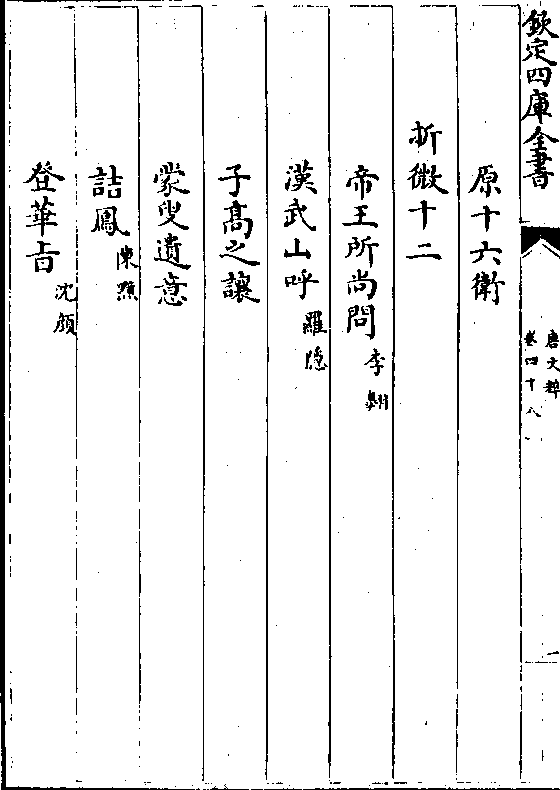 欽定四庫全書
唐文粹
卷四十八
原十六衛
析微十二
帝王所尚問李翺
漢武山呼羅隱
子髙之讓
蒙叟遺意
詰鳳陳黯
登華旨沈顔